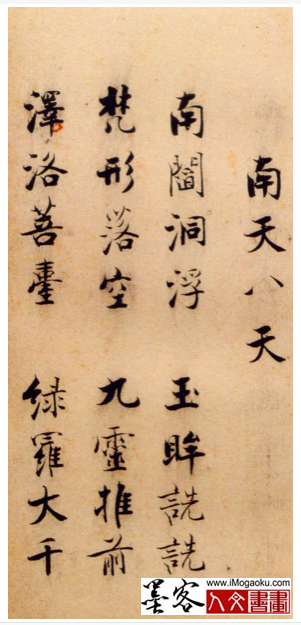 南天八天
南閻洞浮 玉眸詵詵
梵形落空 九靈推前
澤洛菩臺 緑羅大千
www.iMogaoku.com
墨客 人文書畫